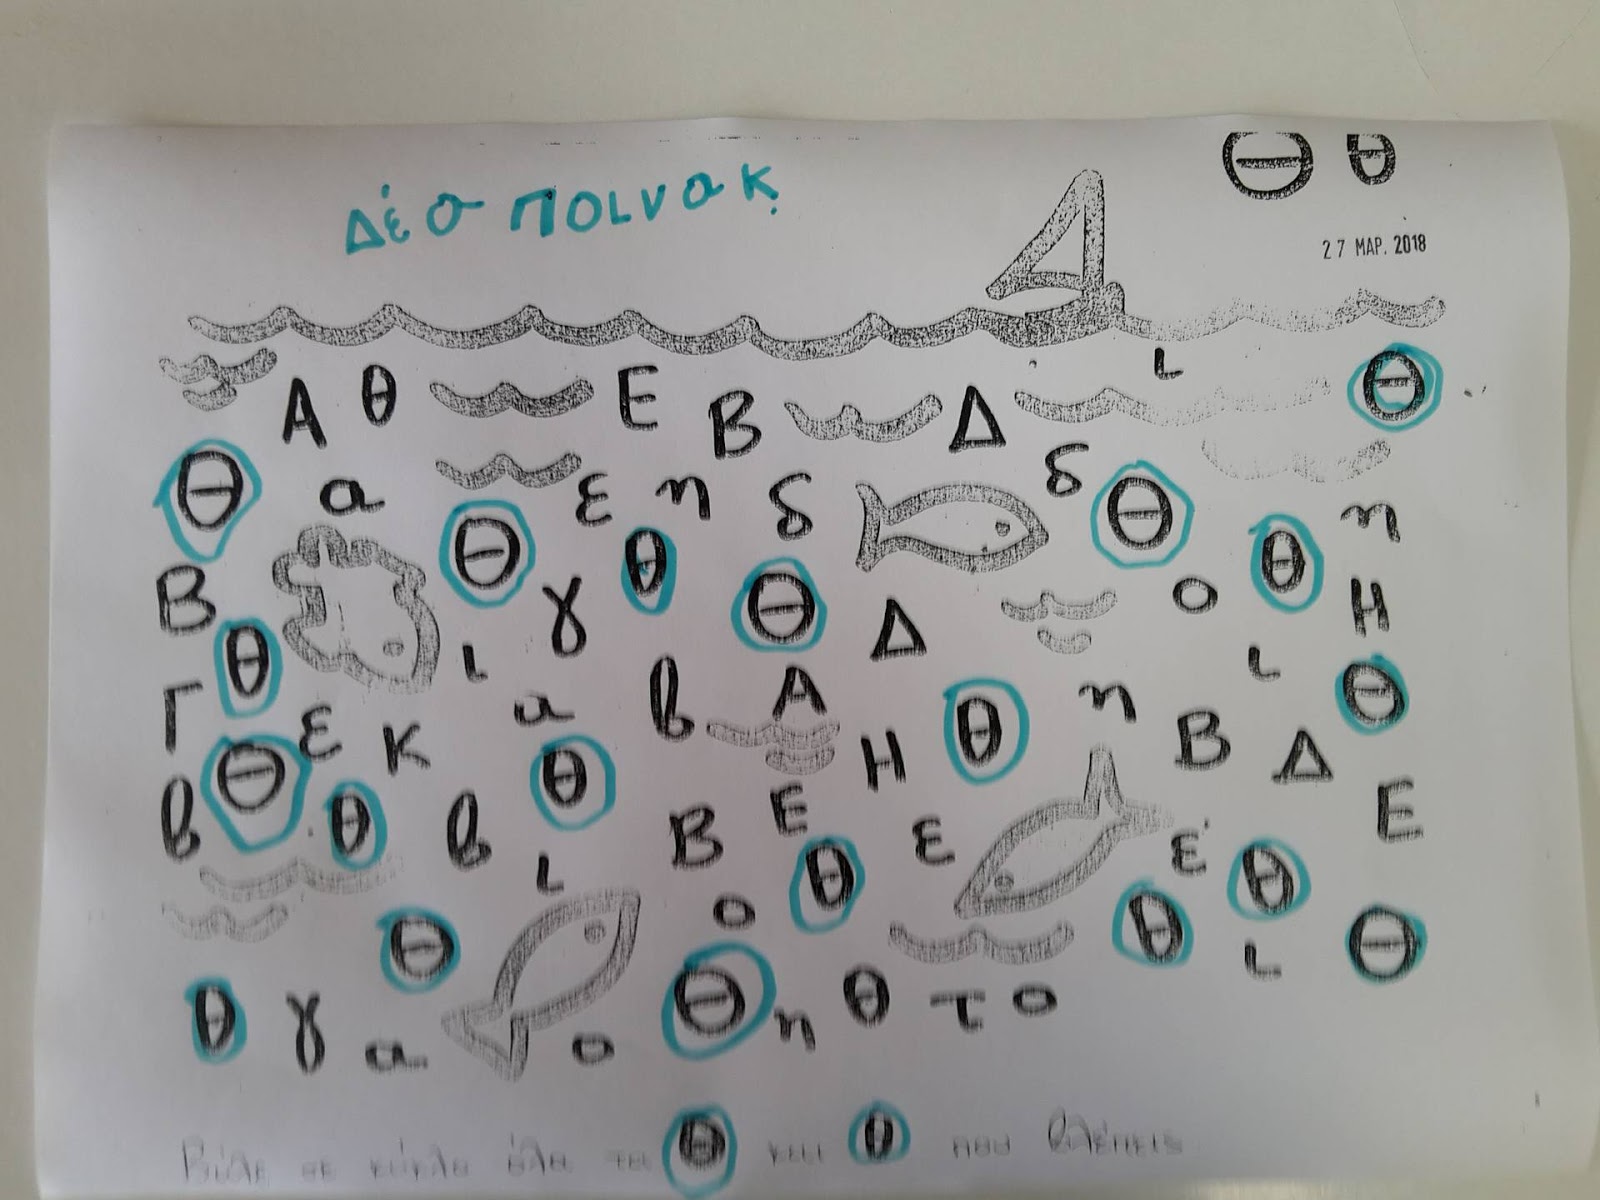 Θ θ
Δέσποινα κ.
27 ΜΑΡ. 2018
ι
Α θ Ε Β Δ Θ
Θ α ε η δ δ Θ η
Θ θ Θ θ
Β γ Δ ο Η
θ ι ι
Γ α β Α θ η Θ
ε κ Η Β Δ
β Θ θ β θ Β Ε ε Ε
ι θ έ θ
Θ ο θ ι Θ
θ γ α ο Θ η θ τ ο
Βάλε σε κύκλο όλα τα Θ και θ που βλέπεις